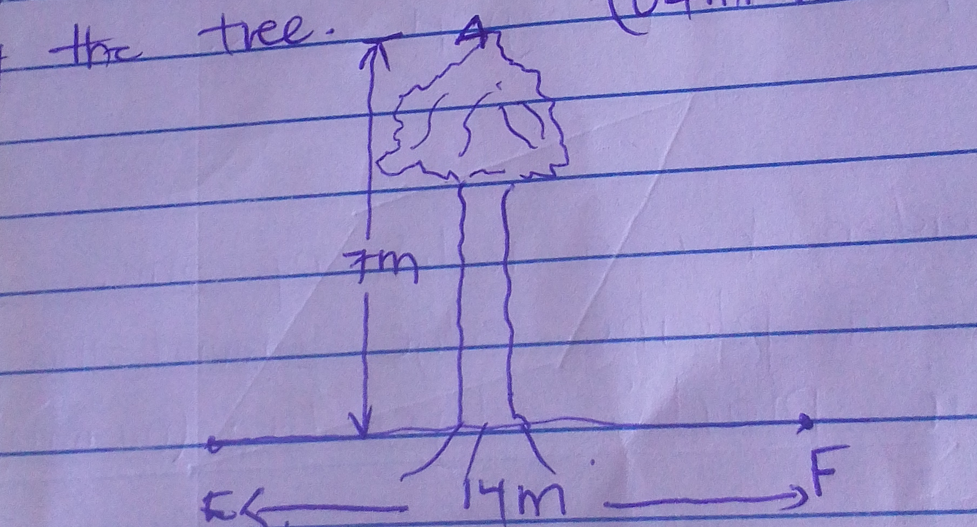 the tree.
A
7m
14m
E
F